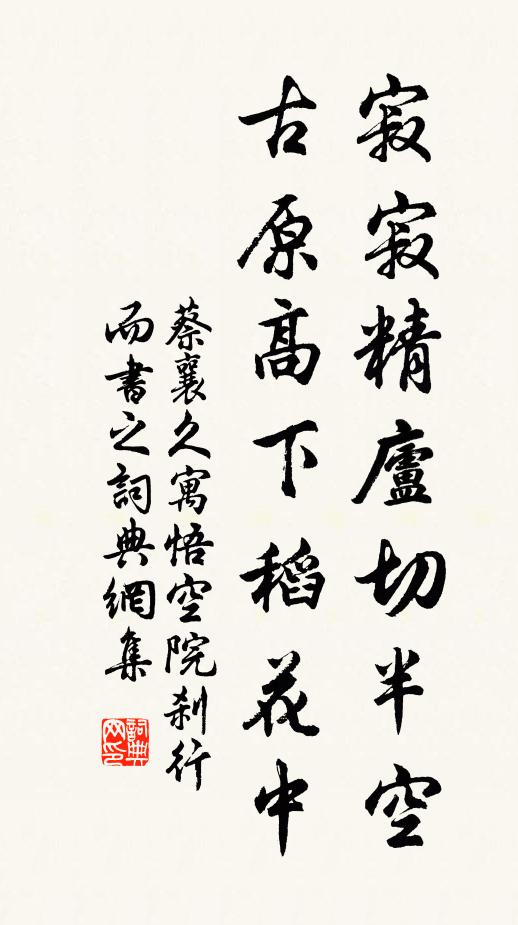 寂寂精廬切半空
古原高下稻花中
蔡襄久寓悟空院刹行
而書之詞典網集
詞典
网印